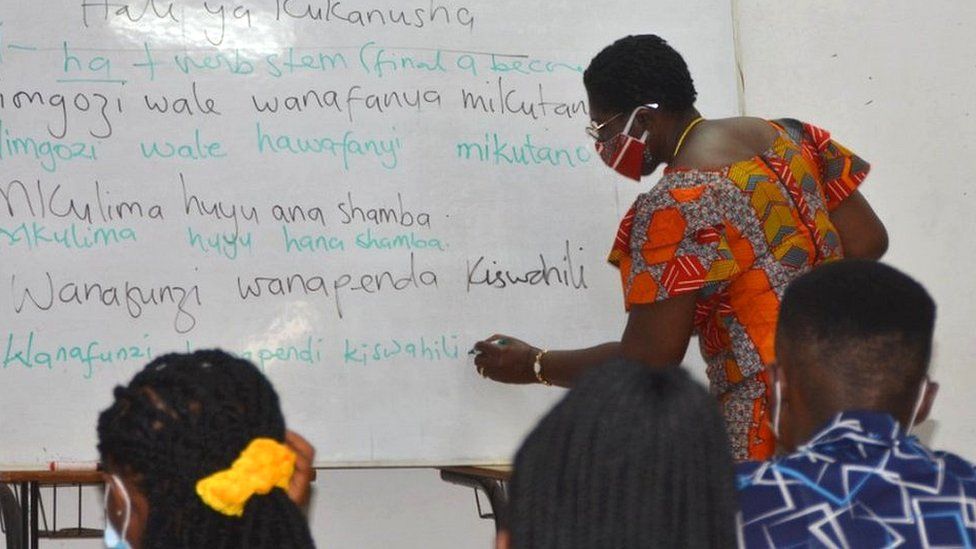 Hali ya Kukanusha
ha + verb stem (final a
wale wanafanya mikutan
wale hawafanyi mikutano
Mkulima huyu ana shamba.
Mkulima huyu hana shamba.
Wanafunzi wanapenda Kiswahili
Wanafunzi kiswahili